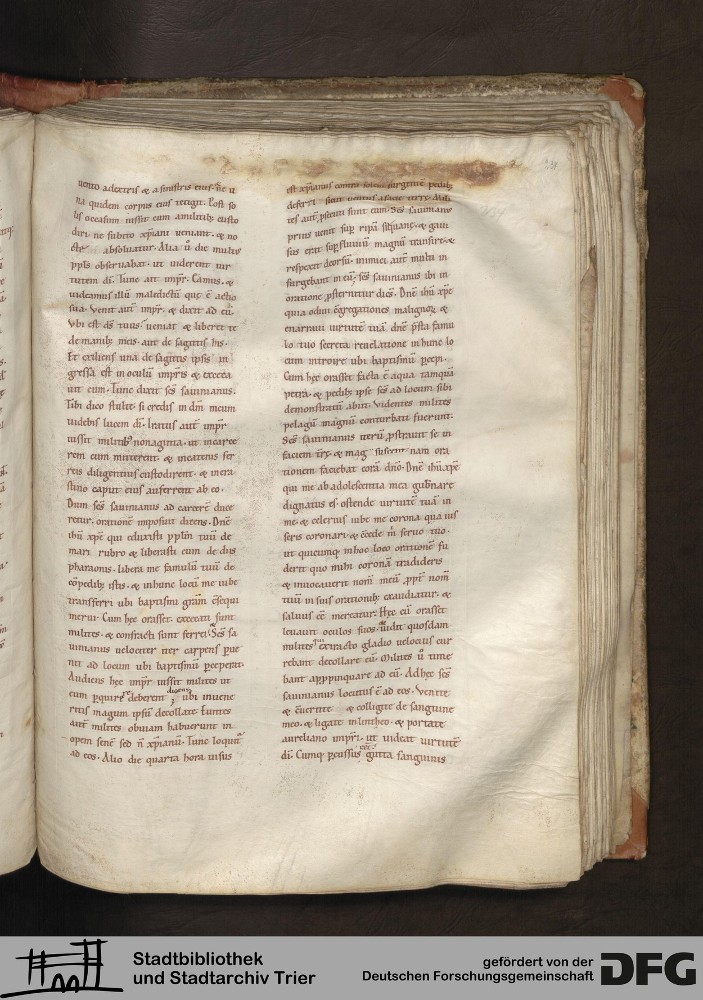 uento adextris & a sinistris eius· ne u
na quidem corpus eius tetigit. Post so
lis occasum iussit eum a militib; custo
diri· ne subito xp̄iani ueniant· & no
absoluatur. Alia ū die multis
ppl̄s obseruabat· ut uiderent uir
tutem dī. Tunc ait imp̄r. Eamus· &
uideamus illū maledictū que ē actio
sua. Venit aut̄ imp̄r· & dixit ad eū.
Vbi est d̄s tuus· ueniat & liberet te
de manib; meis· aut de sagittis his.
Et exiliens una de sagittis ipsis in
gressa est in oculū imp̄ris & excecа
uit eum. Tunc dixit sc̄s sauinianus.
Tibi dico stulte· si credis in dn̄m meum
uidebis lucem dī. Iratus aut̄ imp̄r
iussit militib; nonaginta· ut in carce
rem eum mitterent· & in catenis fer
reis diligentius custodirent· & in cra
stino caput eius auferrent ab eo.
Dum sc̄s sauinianus ad carcerē duce
retur· orationē imposuit dicens. Dn̄e
ihū xp̄e qui eduxisti ppl̄m tuū de
mari rubro & liberasti eum de dus
pharaonis· libera me famulū tuū de
cōpedib; istis· & in hunc locū me iube
transferri ubi baptismi gr̄am c̄sequi
merui. Cum hec orasset· excecati sunt
milites· & confracti sunt ferrei. Sc̄s sa
uinianus uelociter iter carpens pue
nit ad locum ubi baptismū pceperat.
Audiens hec imp̄r iussit milites ut
eum pquirere deberent· & ubi inuene
ritis magum ipsū decollate. Euntes
aut̄ milites obuiam habuerunt in
opem senē sed n̄ xp̄ianū. Tunc loquit᷑
ad eos. Alio die quarta hora uisus
est xp̄ianus
deferri·
tes aut̄ psecuti sunt eum. Sc̄s sauinianus
prius uenit sup ripā sequane· & gaui
sus erat sup fluuiū magnū transire· &
respexit deorsū· inimici aut̄ multi in
surgebant in eū· sc̄s sauinianus ibi in
oratione psternitur dicēs. Dn̄e ihū xp̄e
quia odiui c̄gregationes malignoꝝ &
enarraui uirtutē tuā· dn̄e p̄sta famu
lo tuo secreta reuelatione in hunc lo
cum introire ubi baptismū pcepi.
Cum hec orasset facta ē aqua tamquā
petra· & pedib; ipse sc̄s ad locum sibi
demonstratū abiit. Videntes milites
pelagū magnū conturbati fuerunt.
Sc̄s sauinianus iterū pstrauit se in
faciem t̄rę· & mag suscepit nam ora
tionem faciebat corā dn̄o. Dn̄e ihū xp̄e
qui me ab adolescentia mea gubnare
dignatus es· ostende uirtutē tuā in
me· & celerius iube me corona qua ius
seris coronari· & c̄cede m̄ seruo tuo·
ut quicumq; in hoc loco orationē fu
derit quo mihi coronā tradideris
& inuocauerit nom̄ meū ppt̄ nom̄
tuū in suis orationib; exaudiatur· &
saluus ēē mereatur. Hęc cū orasset
leuauit oculos suos· uidit quosdam
milites extracto gladio uelocius cur
rebant decollare eū. Milites ū time
bant appinquare ad eū. Ad hec sc̄s
sauinianus locutus ē ad eos. Venite
& euertite & colligite de sanguine
meo· & ligate in lintheo· & portate
aureliano imp̄ri· ut uideat uirtutē
dī. Cumq; pcussus eēt gutta sanguinis
Stadtbibliothek
und Stadtarchiv Trier
gefördert von der
Deutschen Forschungsgemeinschaft
DFG